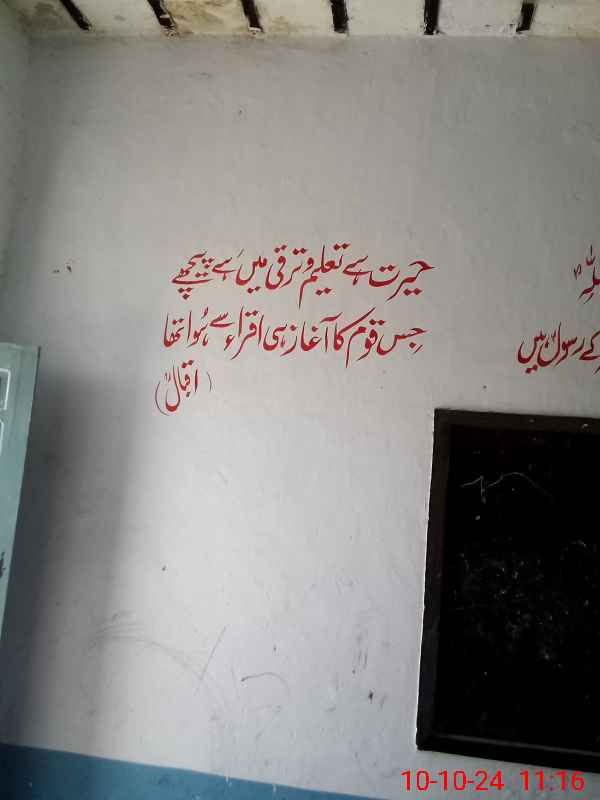 حیرت ہے تعلیم و ترقی میں ہے پیچھے
جس قوم کا آغاز ہی اقراء سے ہوا تھا
(اقبالؒ)
کے رسولؐ ہیں
10-10-24 11:16